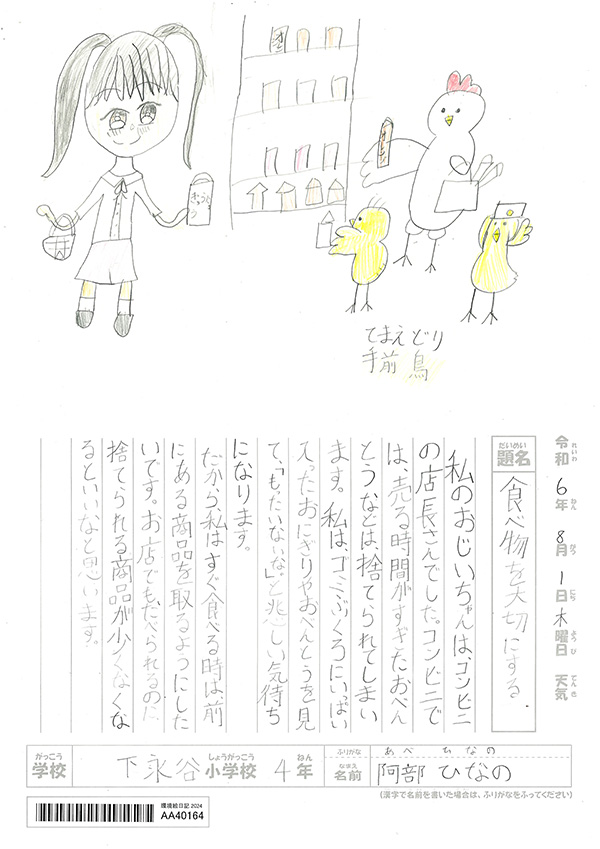 きょうと
てまえどり
手前鳥
令和6年8月1日木曜日 天気
れいわ ねん がつ にち ようび てんき
だいめい
題名
食べ物を大切にする.
私のおじいちゃんは、コンビニ
の店長さんでした。コンビニで
は、売る時間がすぎたおべん
とうなどは捨てられてしまい
ます。私は、ゴミぶくろにいっぱい
入ったおにぎりやおべんとうを見
て、「もったいないな。」と悲しい気持ち
になります。
だから、私はすぐ食べる時は、前
にある商品を取るようにした
いです。お店でもたべられるのに
捨てられる商品が少くなくな
るといいなと思います。
がっこう しょうがっこう ねん
学校 下永谷小学校 4年
ふりがな あべ ひなの
なまえ
名前 阿部 ひなの
(漢字で名前を書いた場合は、ふりがなをふってください)
環境絵日記2024
AA40164